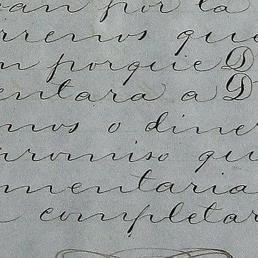 van por la
rrenos que
n porque D
entara a D
mos o diner
promiso qu
mentaria
completar